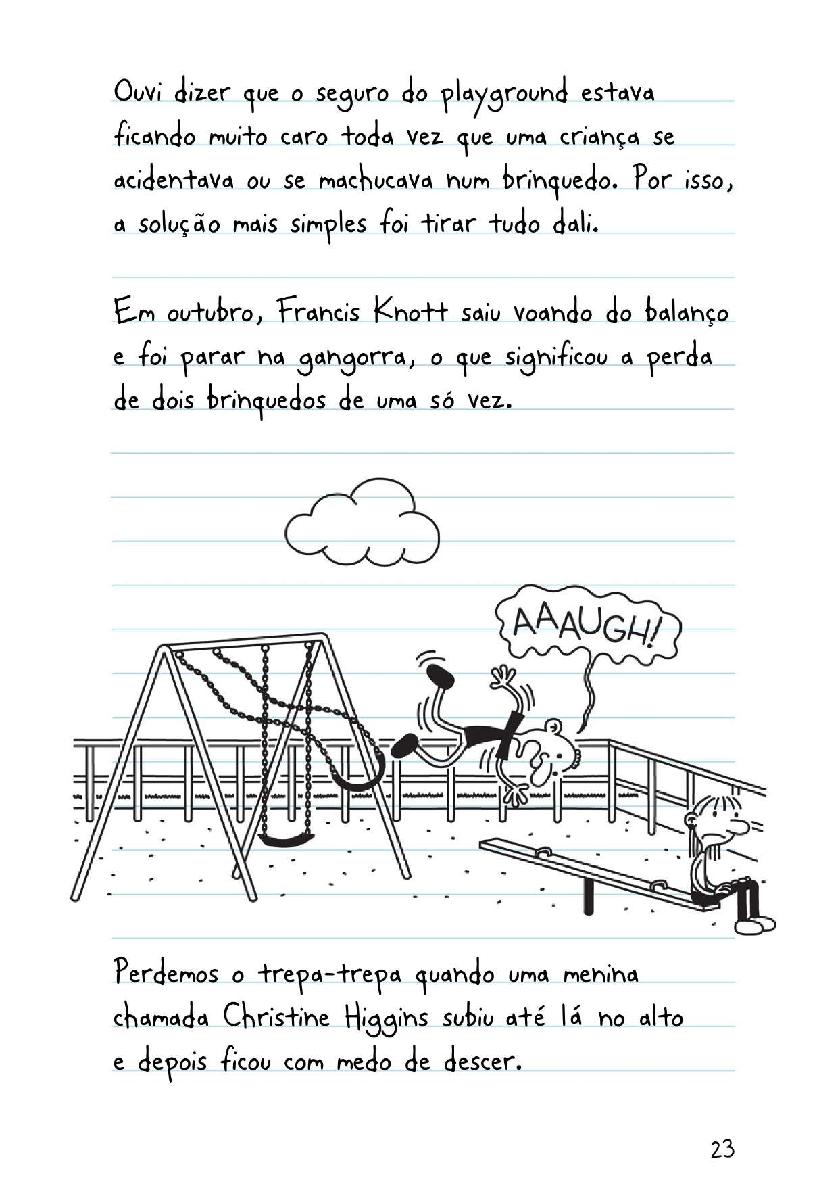 Ouvi dizer que o seguro do playground estava
ficando muito caro toda vez que uma criança se
acidentava ou se machucava num brinquedo. Por isso,
a solução mais simples foi tirar tudo dali.
Em outubro, Francis Knott saiu voando do balanço
e foi parar na gangorra, o que significou a perda
de dois brinquedos de uma só vez.
AAAUGH!
Perdemos o trepa-trepa quando uma menina
chamada Christine Higgins subiu até lá no alto
e depois ficou com medo de descer.
23